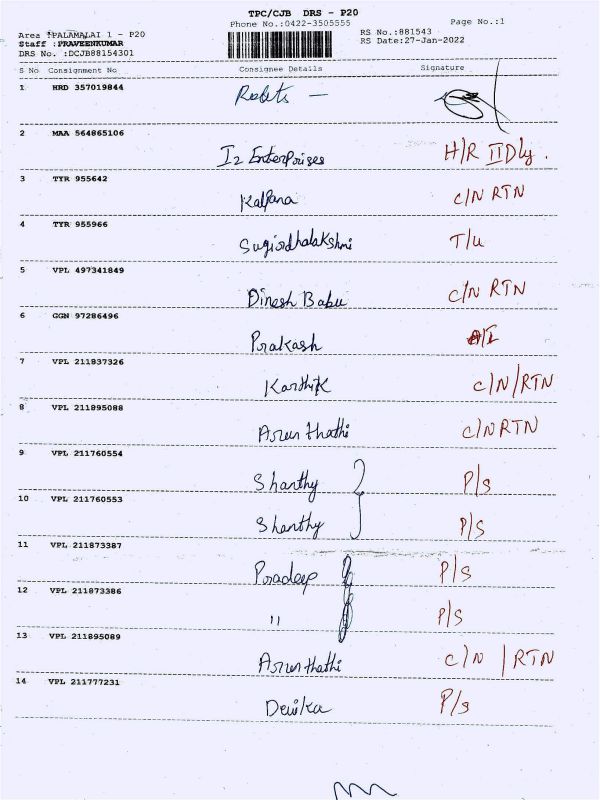 TPC/CJB DRS - P20
Phone No.:0422-3505555 Page No.:1
Area :PALAMALAI 1 - P20 RS No.:881543
Staff :PRAVEENKUMAR RS Date:27-Jan-2022
DRS No. :DCJB88154301
S No Consignment No Consignee Details Signature
1 HRD 357019844
2 MAA 564865106 I2 Enterprises H/R II Dly.
3 TYR 955642 Kalpana C/N RTN
4 TYR 955966 T/u
5 VPL 497341849 Dinesh Babu C/N RTN
6 GGN 97286496 Prakash
7 VPL 211837326 Karthik C/N/RTN
8 VPL 211895088 Arunthathi C/N RTN
9 VPL 211760554 Shanthy P/s
10 VPL 211760553 Shanthy P/s
11 VPL 211873387 Poradeep P/s
12 VPL 211873386 " P/s
13 VPL 211895089 Arunthathi C/N / RTN
14 VPL 211777231 Devika P/s